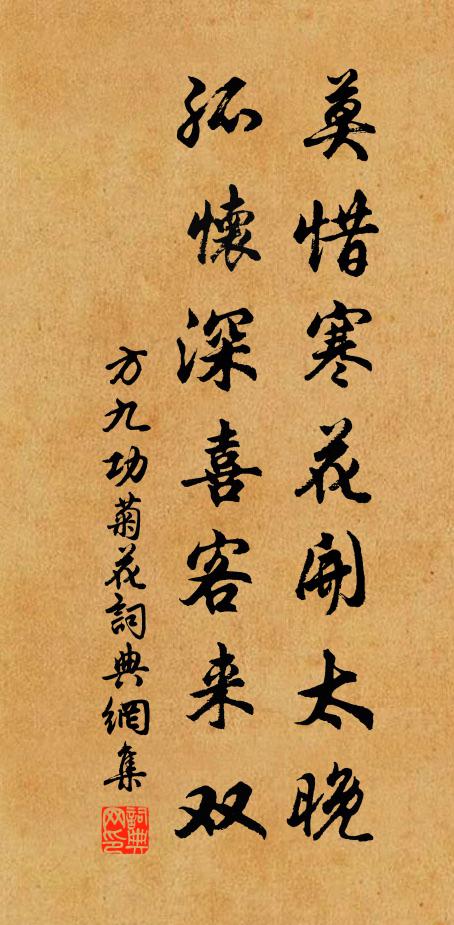 莫惜寒花開太晚
孤懷深喜客来双
方九功菊花詞典網集
詞典网印